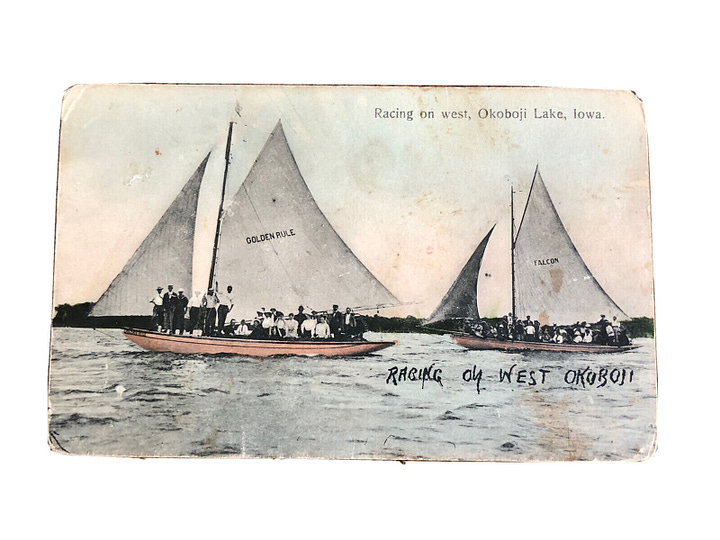 Racing on west, Okoboji Lake, Iowa.
GOLDEN RULE
FALCON
RACING ON WEST OKOBOJI